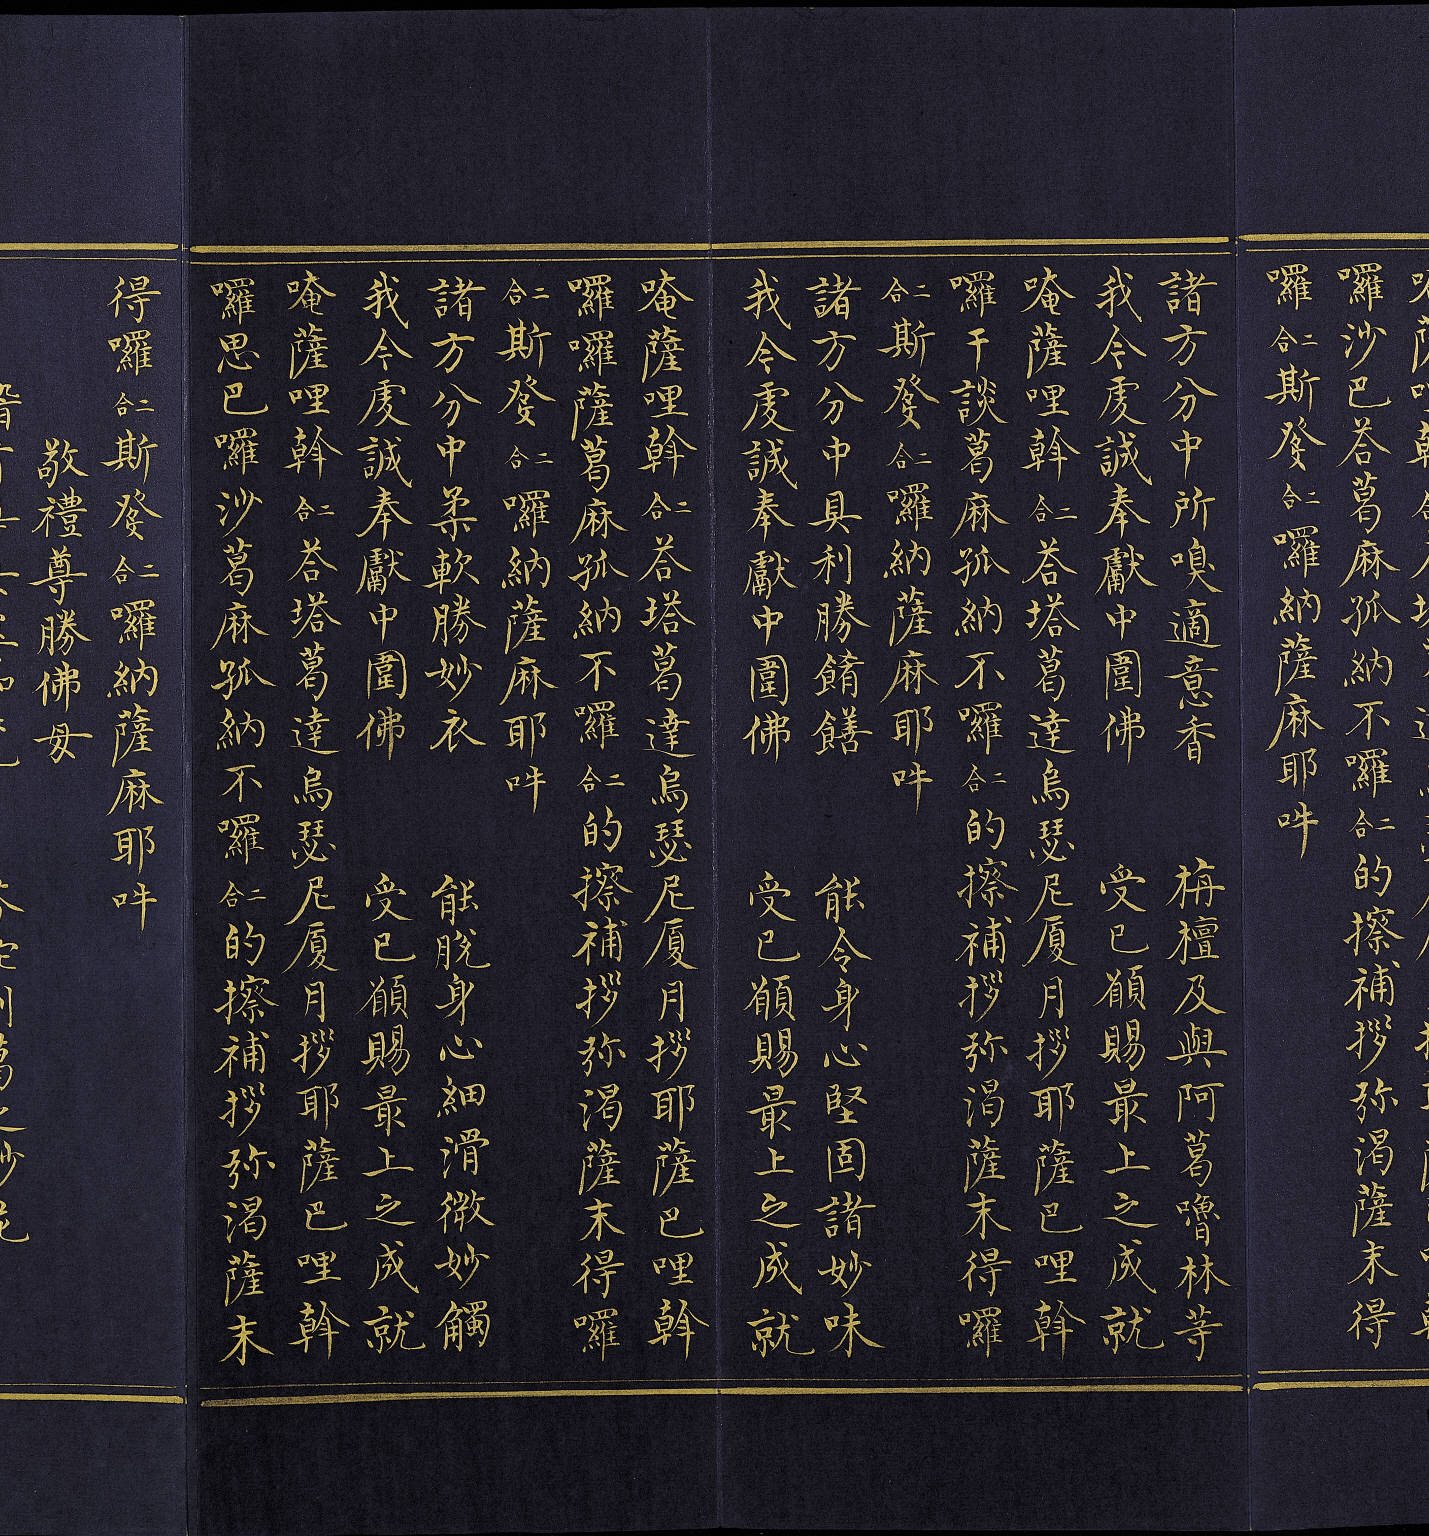 囉沙巴荅葛麻孤納不囉二合的擦補拶弥渴薩末得
囉二合斯癹二合囉納薩麻耶吽
諸方分中所嗅適意香 栴檀及與阿葛嚕林等
我今虔誠奉獻中圍佛 受已願賜最上之成就
唵薩哩斡二合荅塔葛達烏瑟尼厦月拶耶薩巴哩斡
囉干談葛麻孤納不囉二合的擦補拶弥渴薩末得囉
二合斯癹二合囉納薩麻耶吽
諸方分中具利勝餚饍 能令身心堅固諸妙味
我今虔誠奉獻中圍佛 受已願賜最上之成就
唵薩哩斡二合荅塔葛達烏瑟尼厦月拶耶薩巴哩斡
囉囉薩葛麻孤納不囉二合的擦補拶弥渴薩末得囉
二合斯癹二合囉納薩麻耶吽
諸方分中柔軟勝妙衣 能脫身心細滑微妙觸
我今虔誠奉獻中圍佛 受已願賜最上之成就
唵薩哩斡二合荅塔葛達烏瑟尼厦月拶耶薩巴哩斡
囉思巴囉沙葛麻孤納不囉二合的擦補拶弥渴薩末
得囉二合斯癹二合囉納薩麻耶吽
敬禮尊勝佛母